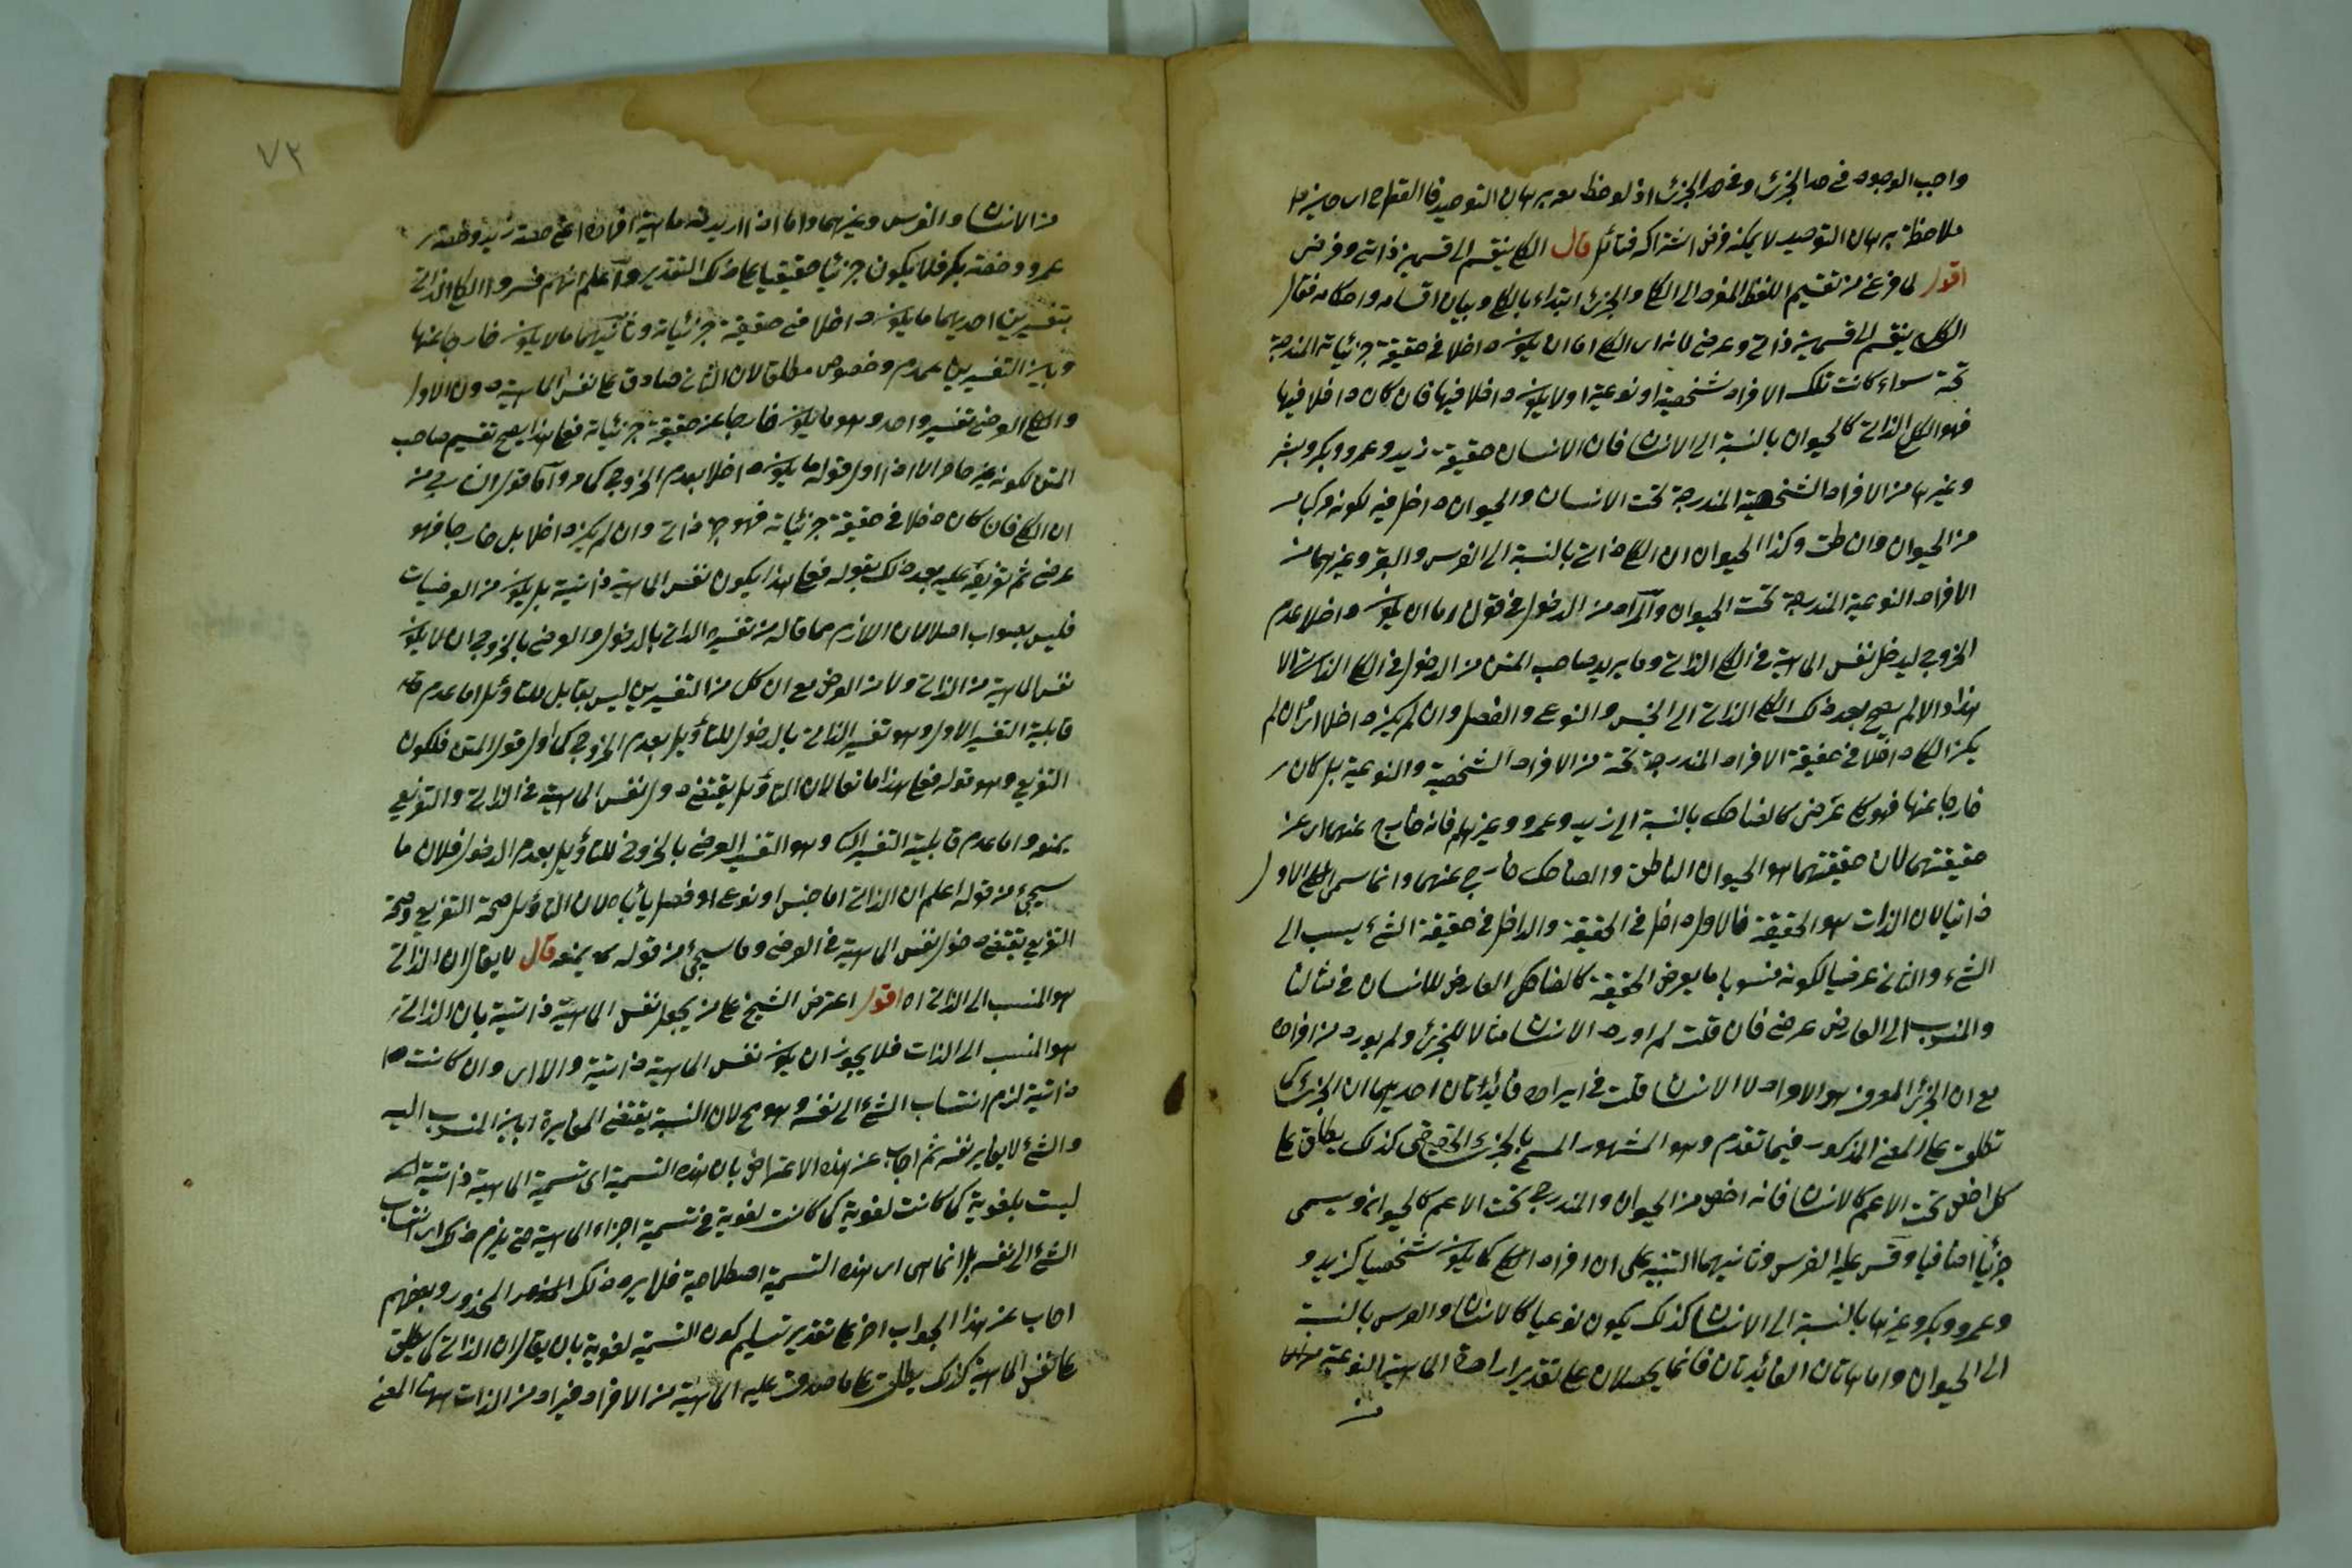 واجب الوجود في حد الجزئ وفي حد الجزئ اذ لو لوحظ معه برهان التوحيد
ملاحظة برهان التوحيد لا يمكن فرض اشتراكه فتأمل قال الكلي ينقسم الى قسمين ذاتي وعرضي
اقول لما فرغ من تقسيم اللفظ المفرد الى الكلي والجزئ ابتداء بالكلي وبيان اقسامه واحكامه فقال
الكلي ينقسم الى قسمين ذاتي وعرضي لانه اى الكلي اما ان يكون داخلا في حقيقة جزئياته المندرجة
تحته سواء كانت تلك الافراد شخصية او نوعية او لا يكون داخلا فيها فان كان داخلا فيها
فهو الكلي الذاتي كالحيوان بالنسبة الى الانسان فان الانسان حقيقة زيد وعمرو وبكر وبشر
وغيرها من الافراد الشخصية المندرجة تحت الانسان والحيوان داخل فيه لكونه مركبا
من الحيوان والناطق وكذا الحيوان اى الكلي ذاتي بالنسبة الى الفرس والبقر وغيرهما من
الافراد النوعية المندرجة تحت الحيوان والمراد من الدخول في قوله اما ان يكون داخلا عدم
الخروج ليدخل نفس الماهية في الكلي الذاتي وما يريد صاحب المتن من الدخول في الكلي الذاتي الا
هذا والا لم يصح بعد ذلك الكلي الذاتي الى الجنس والنوع والفصل وان لم يكن داخلا اى ان لم
يكن الكلي داخلا في حقيقة الافراد المندرجة تحته من الافراد الشخصية والنوعية بل كان
خارجا عنها فهو كلي عرضي كالضاحك بالنسبة الى زيد وعمرو وغيرهم فانه خارج عنهما اى عن
حقيقتهما لان حقيقتهما هو الحيوان الناطق والضاحك خارج عنهما وانما سمى الكلي الاول
ذاتيا لان الذات هو الحقيقة فالاول داخل في الحقيقة والداخل في حقيقة الشئ ينسب الى
الشئ والثاني عرضيا لكونه منسوبا ما يعرض الحقيقة كالضاحك العارض للانسان في مثالنا
والمنسوب الى العارض عرضي فان قلت لم اورد الانسان مثالا للجزئ ولم يورد من افراده
مع ان الجزئ المعروف هو الافراد لا الانسان قلت في ايراده فائدتان احديهما ان الجزئ كما
تطلق على المعنى المذكور فيما تقدم وهو المشهور المسمى بالجزئ الحقيقي كذلك يطلق على
كل اخص تحت الاعم كالانسان فانه اخص من الحيوان والمندرج تحت الاعم كالحيوان ويسمى
جزئيا اضافيا وقس عليه الفرس وثانيهما التنبيه على ان افراد الكلي كما يكون شخصيا كزيد و
وعمرو وبكر وغيرها بالنسبة الى الانسان كذلك يكون نوعيا كالانسان والفرس بالنسبة
الى الحيوان واما هاتان الفائدتان فانما يحصلان على تقدير ارادة الماهية النوعية
من
٧٣
من الانسان والفرس وغيرهما واما اذا اريد منه ماهية افراده اعنى حصة زيد وحصة
عمرو وحصة بكر فلا يكون جزئيا حقيقيا على ذلك التقدير واعلم انهم فسروا الكلي الذاتي
بتفسيرين احديهما ما يكون داخلا في حقيقة جزئياته وثانيهما ما لا يكون خارجا عنها
وبين التفسيرين عموم وخصوص مطلق لان الثاني صادق على نفس الماهية دون الاول
والكلي العرضي تفسير واحد وهو ما يكون خارجا عن حقيقة جزئياته فعلى هذا يصح تقسيم صاحب
المتن لكونه غير حاصر الا اذا اول قوله ما يكون داخلا بعدم الخروج كما مر واما قول
ان الكلي فان كان داخلا في حقيقة جزئياته فهو ذاتي وان لم يكن داخلا بل خارجا فهو
عرضي ثم تفريعه عليه بعد ذلك بقوله فعلى هذا يكون نفس الماهية ذاتية بل يكون من العرضيات
فليس بصواب اصلا لان اللازم مما قاله من تفسير الذاتي بالدخول والعرضي بالخروج ان لا يكون
نفس الماهية من الذاتي ولا من العرضي مع ان كل من التفسيرين ليس بقابل للتاويل اما عدم
قابلية التفسير الاول وهو تفسير الذاتي بالدخول للتأويل بعدم الخروج كما اول قول المتن فلكون
التفريع وهو قوله فعلى هذا مانعا لان التأويل يقتضي دخول نفس الماهية في الذاتي والتفريع
يمنعه واما عدم قابلية التفسير الثاني وهو التفسير العرضي بالخروج للتاويل بعدم الدخول فلان ما
سيجئ من قوله اعلم ان الذاتي اما جنس او نوع او فصل يأباه لان التاويل صحة التفريع وصحة
التفريع يقتضي دخول نفس الماهية في العرضي وما سيجئ من قوله يمنعه قال لا يقال ان الذاتي
هو المنسب الى الذاتي اه اقول اعترض الشيخ على من يجعل نفس الماهية ذاتية بان الذاتي
هو المنسب الى الذات فلا يجوز ان يكون نفس الماهية ذاتية والا اى وان كانت
ذاتية لزم انتساب الشئ الى نفسه وهو مح لان النسبة يقتضي المغايرة بين المنسوب اليه
والشئ لا يغاير نفسه ثم اجاب عن هذه الاعتراض بان هذه التسمية اى تسمية الماهية ذاتية
ليست بلغوية كما كانت لغوية في تسمية اجزاء الماهية حتى يلزم ذلك اى انتساب
الشئ الى نفسه بل انما هى اى هذه التسمية اصطلاحية فلا يرد ذلك المحذور وبعضهم
اجاب عن هذا الجواب اخر على تقدير تسليم كون التسمية لغوية بان يقال ان الذاتي كما يطلق
على نفس الماهية كذلك يطلق على ما صدق عليه الماهية من الافراد فيراد من الذات ههنا المعنى